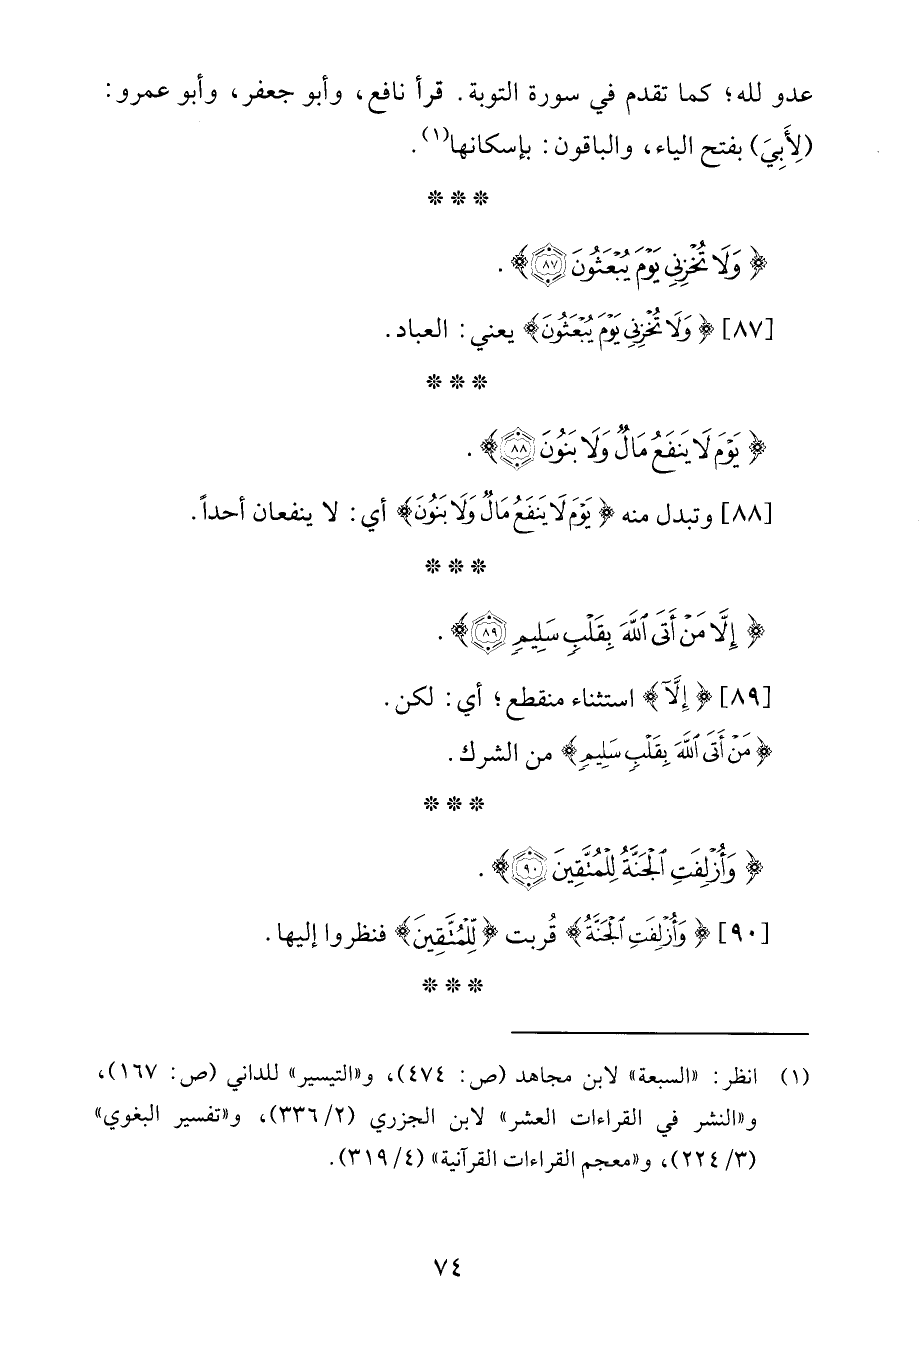 عدو لله؛ كما تقدم في سورة التوبة. قرأ نافع، وأبو جعفر، وأبو عمرو:
(لِأَبِيَ) بفتح الياء، والباقون: بإسكانها(١).
* * *
﴿وَلَا تُخْزِنِي يَوْمَ يُبْعَثُونَ ٨٧﴾.
[٨٧] ﴿وَلَا تُخْزِنِي يَوْمَ يُبْعَثُونَ﴾ يعني: العباد.
* * *
﴿يَوْمَ لَا يَنفَعُ مَالٌ وَلَا بَنُونَ ٨٨﴾.
[٨٨] وتبدل منه ﴿يَوْمَ لَا يَنفَعُ مَالٌ وَلَا بَنُونَ﴾ أي: لا ينفعان أحداً.
* * *
﴿إِلَّا مَنْ أَتَى ٱللَّهَ بِقَلْبٍ سَلِيمٍ ٨٩﴾.
[٨٩] ﴿إِلَّا﴾ استثناء منقطع؛ أي: لكن.
﴿مَنْ أَتَى ٱللَّهَ بِقَلْبٍ سَلِيمٍ﴾ من الشرك.
* * *
﴿وَأُزْلِفَتِ ٱلْجَنَّةُ لِلْمُتَّقِينَ ٩٠﴾.
[٩٠] ﴿وَأُزْلِفَتِ ٱلْجَنَّةُ﴾ قُربت ﴿لِلْمُتَّقِينَ﴾ فنظروا إليها.
* * *
(١) انظر: «السبعة» لابن مجاهد (ص: ٤٧٤)، و«التيسير» للداني (ص: ١٦٧)،
و«النشر في القراءات العشر» لابن الجزري (٢/ ٣٣٦)، و«تفسير البغوي»
(٣/ ٢٢٤)، و«معجم القراءات القرآنية» (٤/ ٣١٩).
٧٤